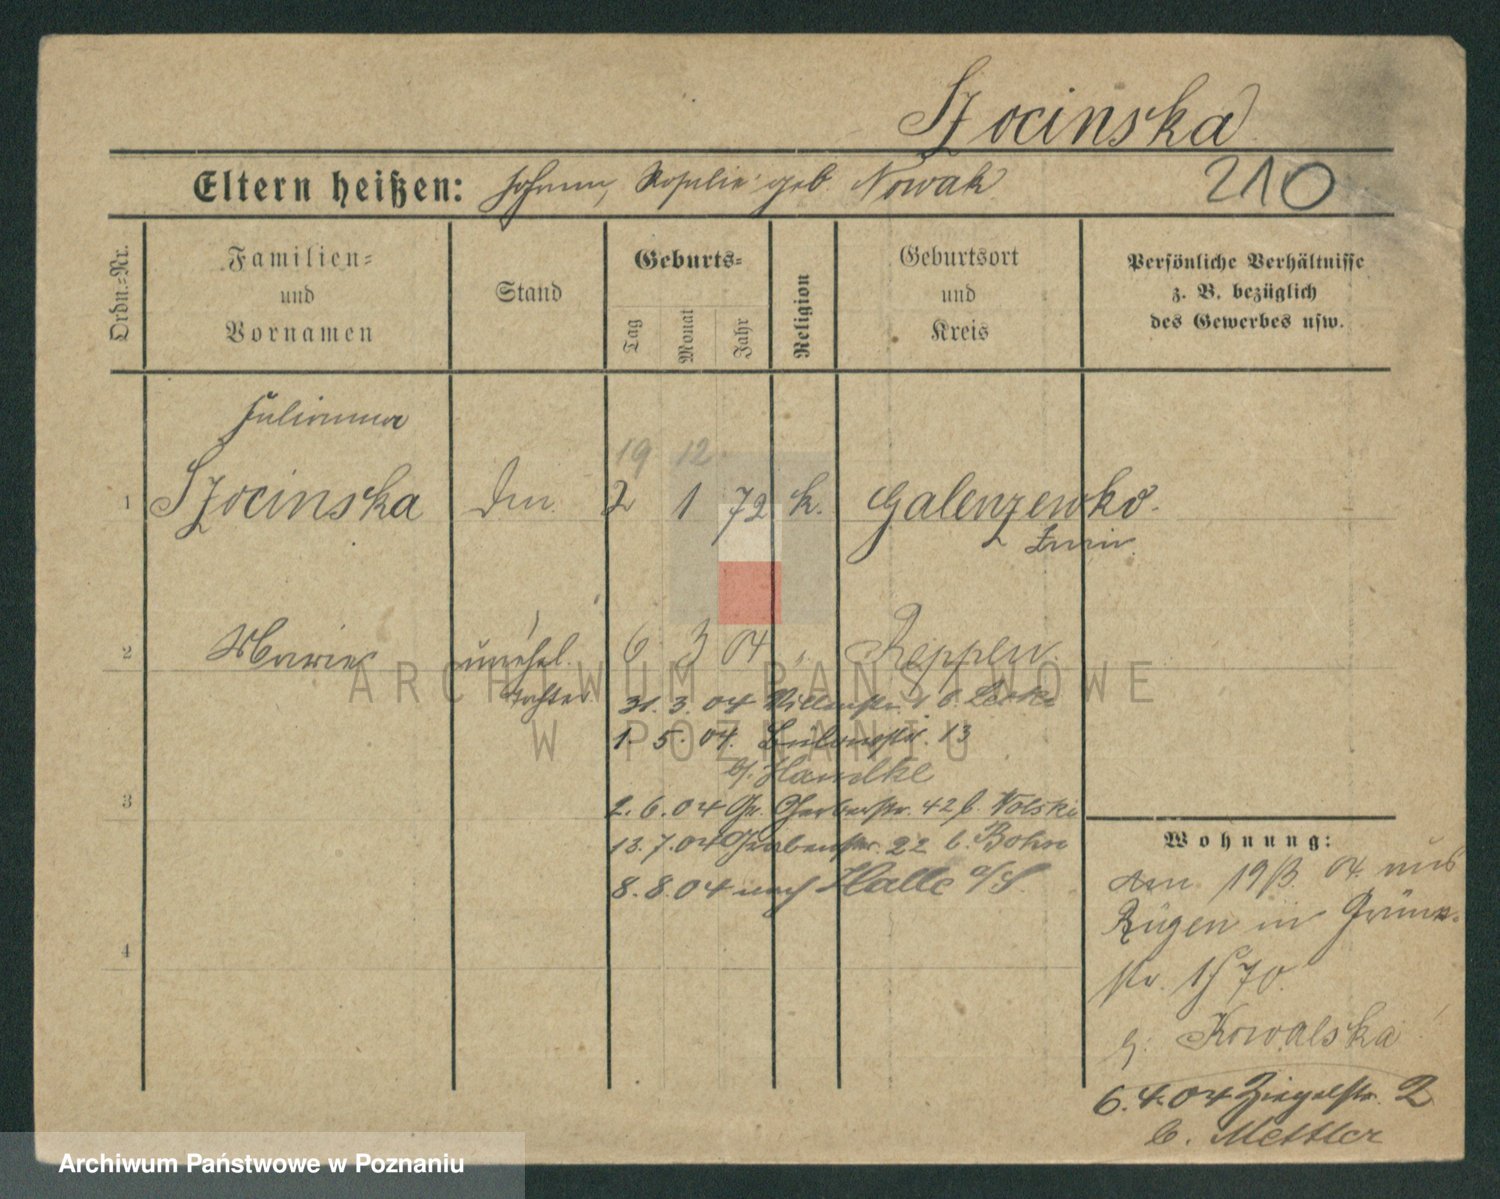 Szocinska
Eltern heißen: Johann, Rosalie geb. Nowak
210
Ordn.=Nr.
Familien=
und
Vornamen
Stand
Geburts=
Tag
Monat
Jahr
Religion
Geburtsort
und
Kreis
Persönliche Verhältnisse
z. B. bezüglich
des Gewerbes usw.
Julianna
19 12
1 Szocinska 2 1 72 k. Galenzewko.
Znin
2 Marie unehel. 6 3 04 Reppen
Tochter
31. 3. 04
1. 5. 04. 13
b/. Handke
3
2. 6. 04 Gr. Gerberstr. 42 b. Wolski
13. 7. 04 Grabenstr. 22 b.
8. 8. 04 nach Halle a/S.
4
Wohnung:
am 19/3. 04. aus
Rügen in
str. 70.
b. Kowalska
6. 4. 04 Ziegelstr. 2
b. Mettler
ARCHIWUM PAŃSTWOWE
W POZNANIU
Archiwum Państwowe w Poznaniu